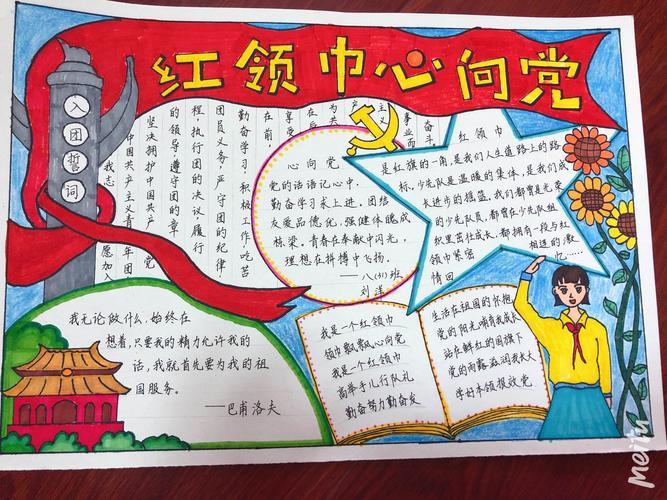 红领巾心向党
入团誓词
我志愿加入
中国共产主义青年团
坚决拥护中国共产党
的领导，遵守团的章
程，执行团的决议，履行
团员义务，严守团的纪律，
勤奋学习，积极工作，吃苦
在前，
享受
在后，
为共
主义
事业而
奋斗。
心向党
党的话语记心中，
勤奋学习求上进。团结
友爱品德优，强健体魄成
栋梁。青春在奉献中闪光，
理想在拼搏中飞扬。
——八(31)班
刘洋
红领巾
是红旗的一角，是我们人生道路上的路
标。少先队是温暖的集体，是我们成
长进步的摇篮。我们都曾是光荣
的少先队员，都曾在少先队组
织里茁壮成长，都拥有一段与红
领巾紧密相连的激
情回忆……
我无论做什么，始终在
想着，只要我的精力允许我的
话，我就首先要为我的祖
国服务。
——巴甫洛夫
我是一个红领巾
领巾飘飘心向党
我是一个红领巾
高举手儿行队礼
勤奋努力勤奋发
生活在祖国的怀抱
党的阳光哺育我成长
站在鲜红的国旗下
党的雨露滋润我长大
学好本领报效党
Meitu